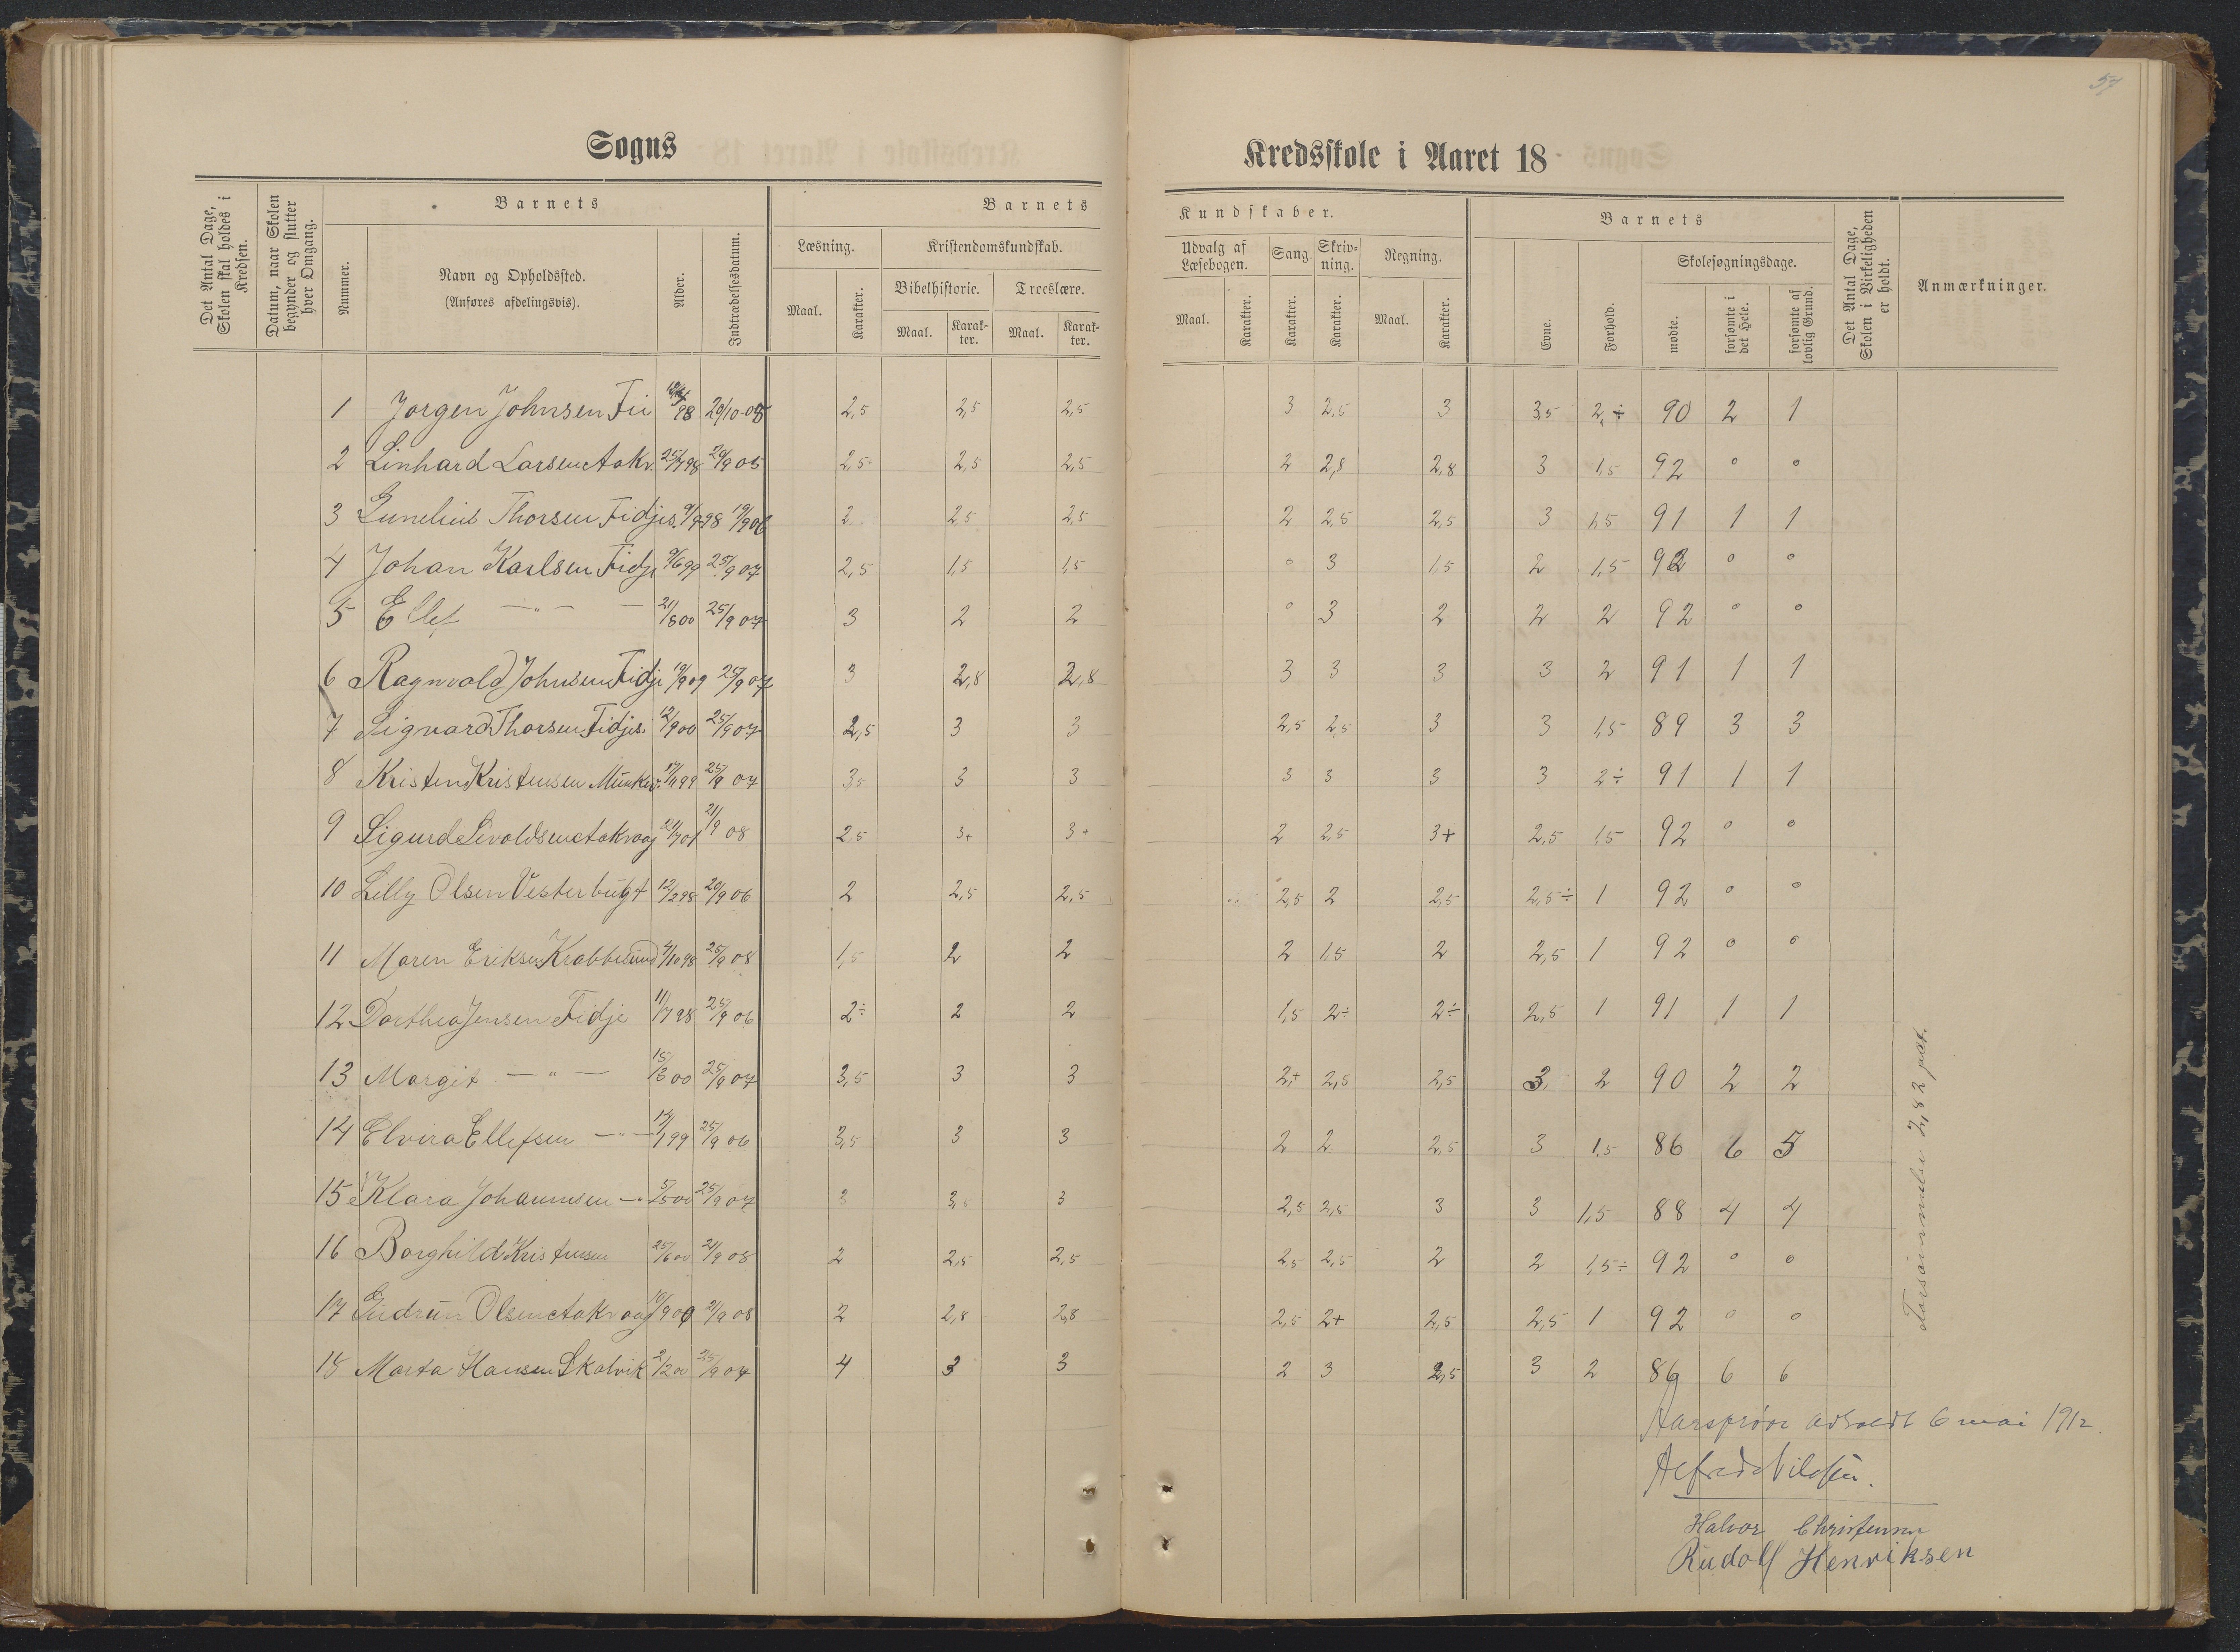 57
Sogns
Kredsskole i Aaret 18
Det Antal Dage, Skolen skal holdes i Kredsen.
Datum, naar Skolen begynder og slutter hver Omgang.
Barnets
Nummer.
Navn og Opholdssted.
(Anføres afdelingsvis).
Alder.
Indtrædelsesdatum.
Barnets
Læsning.
Kristendomskundskab.
Bibelhistorie.
Troeslære.
Maal.
Karakter.
Maal.
Karakter.
Maal.
Karakter.
Kundskaber.
Udvalg af Læsebogen.
Sang.
Skrivning.
Regning.
Maal.
Karakter.
Karakter.
Karakter.
Maal.
Karakter.
Barnets
Evne.
Forhold.
Skolesøgningsdage.
mødte.
forsømte i det Hele.
forsømte af lovlig Grund.
Det Antal Dage, Skolen i Virkeligheden er holdt.
Anmærkninger.
1 Jørgen Johnsen Fii 98 20/10-05 2,5 2,5 2,5 3 2,5 3 3,5 2÷ 90 2 1
2 Linhard Larsen Aakv. 25/7 98 20/9 05 2,5 2,5 2,5 2 2,8 2,8 3 1,5 92 0 0
3 Gunelius Thorsen Fidjes. 9/9 98 19/9 06 2 2,5 2,5 2 2,5 2,5 3 1,5 91 1 1
4 Johan Karlsen Fidje 9/6 99 25/9 07 2,5 1,5 1,5 0 3 1,5 2 1,5 92 0 0
5 Ellef — " — 21/8 00 25/9 07 3 2 2 0 3 2 2 2 92 0 0
6 Ragnvald Johnsen Fidje 25/9 07 3 2,8 2,8 3 3 3 3 2 91 1 1
7 Sigvard Thorsen Fidjes. 12/9 00 25/9 07 2,5 3 3 2,5 2,5 3 3 1,5 89 3 3
8 Kristen Kristensen 99 25/9 07 3,5 3 3 3 3 3 3 2÷ 91 1 1
9 Sigurd Sivoldsen Aakvaag 21/7 01 21/9 08 2,5 3+ 3+ 2 2,5 3+ 2,5 1,5 92 0 0
10 Lilly Olsen Vesterbugt 12/2 98 20/9 06 2 2,5 2,5 2,5 2 2,5 2,5÷ 1 92 0 0
11 Maren Eriksen Krabbesund 4/10 98 25/9 08 1,5 2 2 2 1,5 2 2,5 1 92 0 0
12 Darthea Jensen Fidje 11/7 98 25/9 06 2÷ 2 2 1,5 2÷ 2÷ 2,5 1 91 1 1
13 Margit — " — 15/6 00 25/9 07 3,5 3 3 2+ 2,5 2,5 3 2 90 2 2
14 Elvira Ellefsen — " — 14/1 99 25/9 06 3,5 3 3 2 2 2,5 3 1,5 86 6 5
15 Klara Johannesen — " — 5/5 00 25/9 07 3 3,5 3 2,5 2,5 3 3 1,5 88 4 4
16 Borghild Kristensen 25/6 00 21/9 08 2 2,5 2,5 2,5 2,5 2 2 1,5÷ 92 0 0
17 Gudrun Olsen Aakvaag 10/9 00 21/9 08 2 2,8 2,8 2,5 2+ 2,5 2,5 1 92 0 0
18 Marta Hansen Skalvik 2/2 00 25/9 07 4 3 3 2 3 2,5 3 2 86 6 6
Forsømmelse 2,82 pct.
Aarsprøve avholdt 6 mai 1912.
Alfred Nilsen.
Halvor Christensen
Rudolf Henriksen